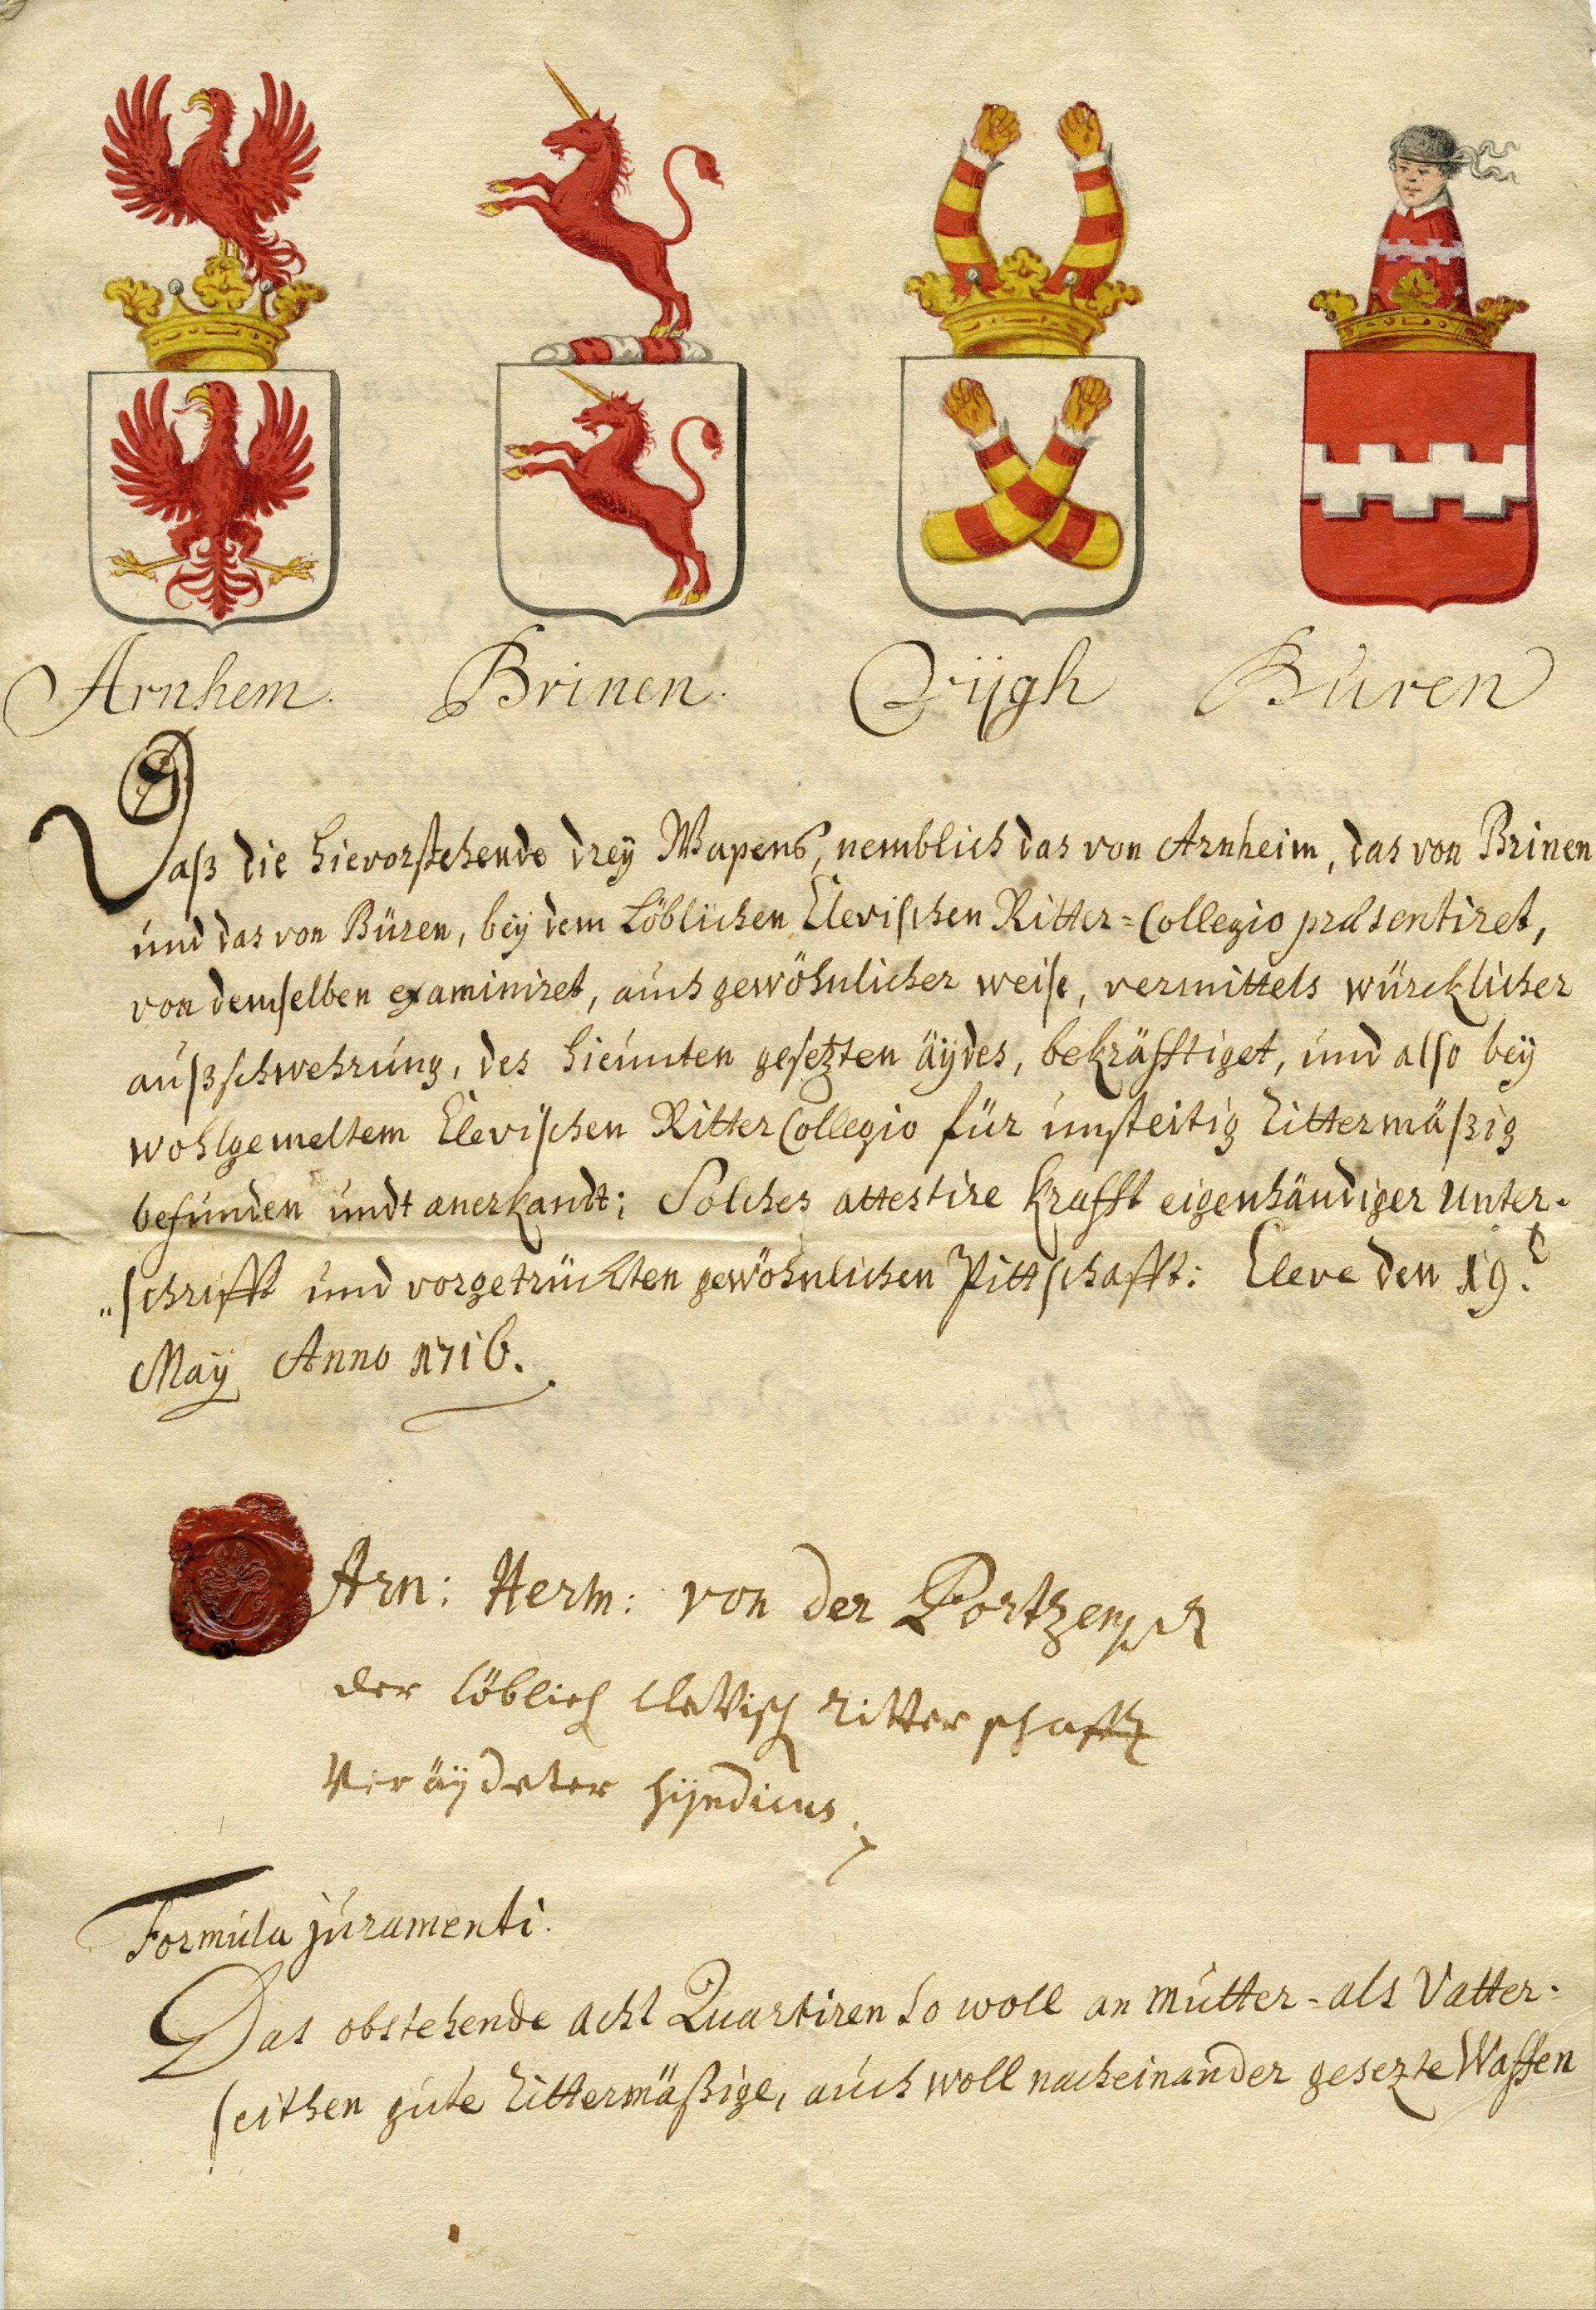 Arnhem. Brinen. Brijgh Buren
Daß die hievorstehende dreÿ Wapens, nemblich das von Arnheim, das von Brinen
und das von Büren, beÿ dem Löblichen Clevischen Ritter=Collegio præsentiret,
von demselben examiniret, auch gewöhnlicher weise, vermittels würcklicher
außschwehrung, des hieunten gesetzten äÿdes, bekräfftiget, und also beÿ
wohlgemeltem Clevischen Ritter Collegio für unsteitig Rittermäßig
befunden undt anerkandt; Solches attestire krafft eigenhändiger Unter=
"schrifft und vorgetrückten gewöhnlichen Pittschafft: Cleve den 19.t
Maÿ Anno 1716.
Arn: Herm: von der Portzen
der löblich Clevisch Ritterschafft
Veräÿdeter Sÿndicus
Formula juramenti.
Das obstehende acht Quartiren so woll an Mutter=als Vatter=
seithen gute Rittermäßige, auch woll nacheinander gesezte Waffen